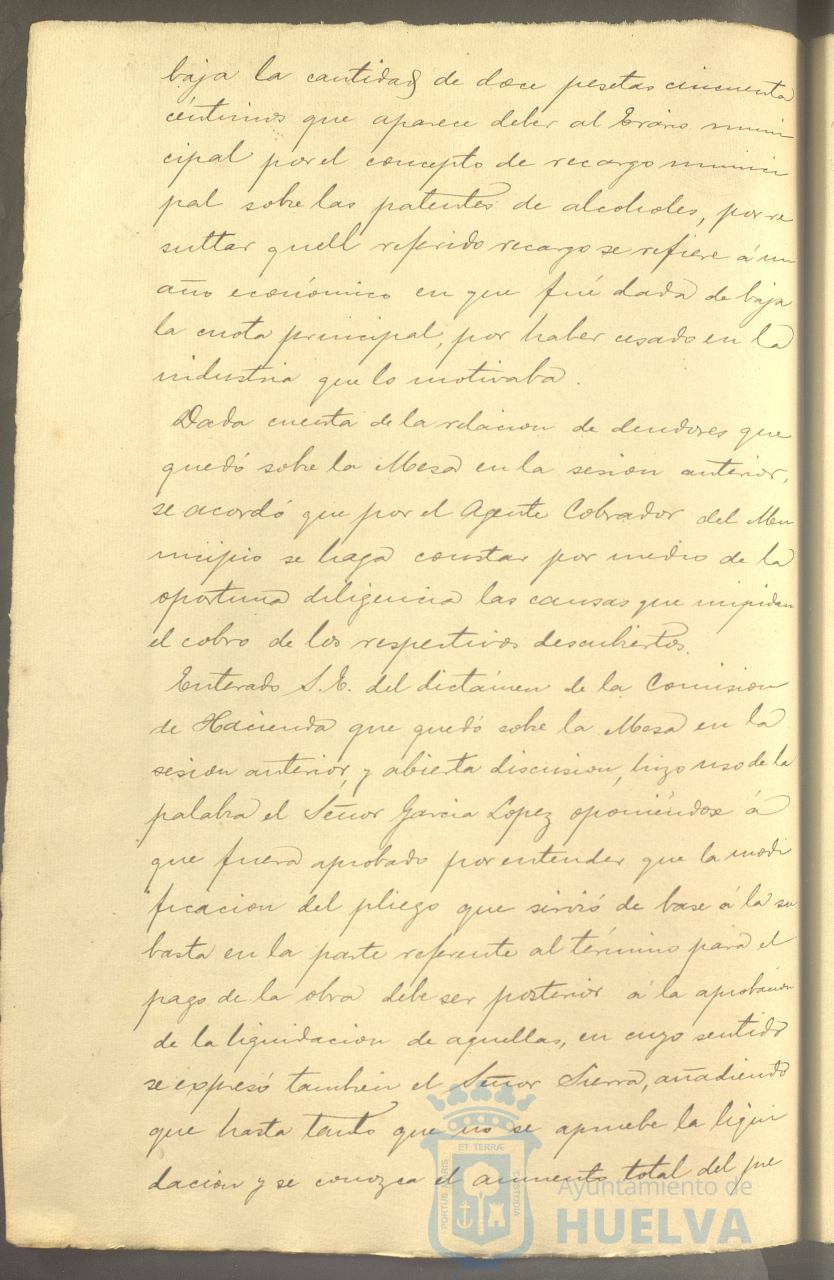 baja la cantidad de doce pesetas cincuenta
céntimos que aparece deber al Erario muni
cipal por el concepto de recargo munici
pal sobre las patentes de alcoholes, por re
sultar quell referido recargo se refiere á un
año económico en que fué dada de baja
la cuota principal, por haber cesado en la
industria que lo motivaba.
Dada cuenta de la relacion de deudores que
quedó sobre la Mesa en la sesion anterior,
se acordó que por el Agente Cobrador del Mu
nicipio se haga constar por medio de la
oportuna diligencia las causas que impidan
el cobro de los respectivos descubiertos.
Enterado S.E. del dictámen de la Comision
de Hacienda que quedó sobre la Mesa en la
sesion anterior, y abierta discusion, hizo uso de la
palabra el Señor Garcia Lopez oponiéndose á
que fuera aprobado por entender que la modi
ficacion del pliego que sirvió de base á la su
basta en la parte referente al término para el
pago de la obra debe ser posterior á la aprobacion
de la liquidacion de aquellas, en cuyo sentido
se expresó tambien el Señor Sierra, añadiendo
que hasta tanto que no se apruebe la liqui
dacion y se conozca el aumento total del pre
PORTUS MARIS
ET TERRÆ
CUSTODIA
Ayuntamiento de
HUELVA